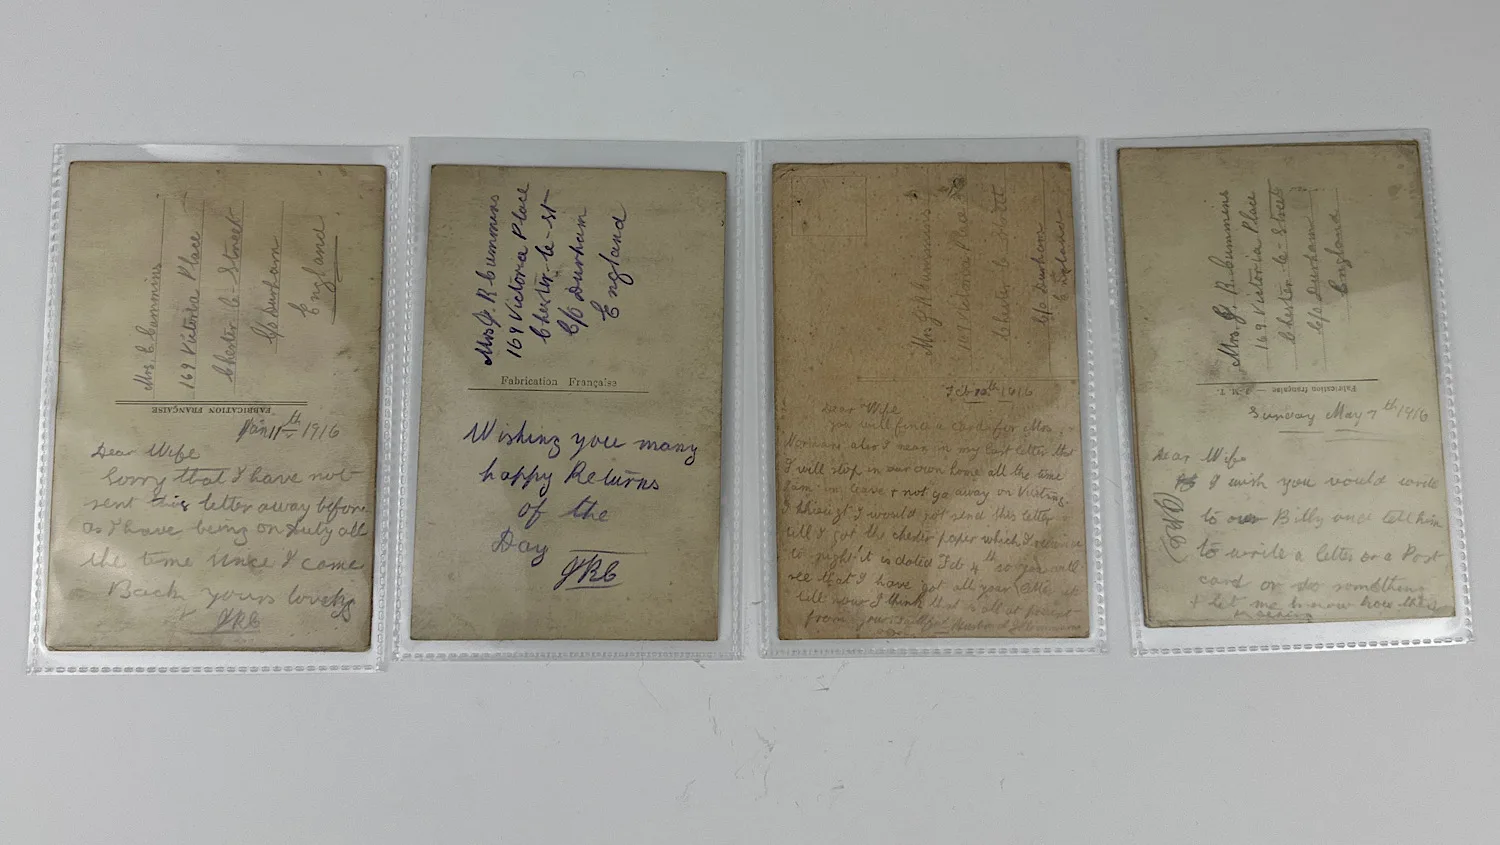 Mrs C Cummins
169 Victoria Place
Chester-le-Street
C/o Durham
England
FABRICATION FRANÇAISE
Jan 11th 1916
Dear Wife
Sorry that I have not
sent this letter away before
as I have being on Duty all
the time since I came
Back yours lovely
JRC
Mrs J. R Cummins
169 Victoria Place
Chester-le-St
C/o Durham
England
Fabrication Française
Wishing you many
happy Returns
of the
Day
JRC
Mrs J R Cummins
169 Victoria Place
Chester le Street
C/o Durham
England
Feb 1916
Dear Wife
you will find a card for Mrs
Norman also I mean in my last letter that
I will stop in our own home all the time
I am on leave + not go away on Visiting
I thought I would not send this letter
till I got the chester paper which I receive
to night it is dated Feb 4th so you will
see that I have got all your
till now I think that is all at present
from your Husband J Cummins
Mrs. J R. Cummins
169 Victoria Place
Chester-le-Street
C/o Durham
England
Fabrication française — J. M. T.
Sunday May 7th 1916
Dear Wife
I wish you would write
to Billy and tell him
to write a letter or a Post
card or do something
+ let me know how
JRC